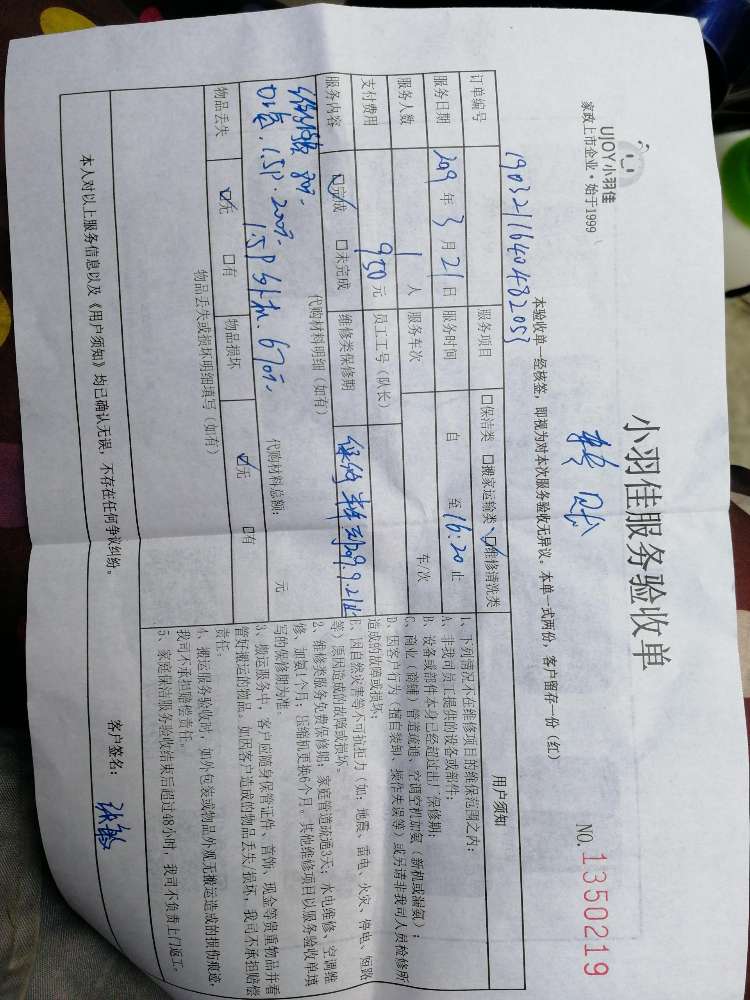 UJOY小羽佳
家政上市企业·始于1999
小羽佳服务验收单
NO.1350219
本验收单一经核签，即视为对本次服务验收无异议。本单一式两份，客户留存一份（红）
订单编号 1903211640482053
服务项目 □保洁类 □搬家运输类 ☑维修清洗类
服务日期 2019年3月21日 服务时间 自 至16:20止
服务人数 1人 服务车次 车/次
支付费用 950元 员工工号（队长）
服务内容 ☑完成 □未完成 维修类保修期
代购材料明细（如有）
1.5P 200元
1.5P外机 670元
代购材料总额： 元
物品丢失 ☑无 □有 物品损坏 ☑无 □有
物品丢失或损坏明细填写（如有）
用户须知
1、下列情况不在维修项目的维保范围之内：
A、非我司员工提供的设备或部件；
B、设备或部件本身已经超过出厂保修期；
C、商业（商铺）管道疏通、空调空机加氨（新机或漏氨）；
D、因客户行为（擅自装卸、操作失误等）或另请非我司人员检修所
造成的故障或损坏；
E、因自然灾害等不可抗拒力（如：地震、雷电、火灾、停电、短路
等）原因造成的故障或损坏。
2、维修类服务免费保修期：家庭管道疏通3天；水电维修、空调维
修、加氨1个月；压缩机更换6个月。其他维修项目以服务验收单填
写的保修期为准。
3、搬运服务中，客户应随身保管证件、首饰、现金等贵重物品并看
管好搬运的物品。如因客户造成的物品丢失/损坏，我司不承担赔偿
责任。
4、搬运服务验收时，如外包装或物品外观无搬运造成的损伤痕迹，
我司不承担赔偿责任。
5、家庭保洁服务验收结束后超过48小时，我司不负责上门返工。
本人对以上服务信息以及《用户须知》均已确认无误，不存在任何争议纠纷。
客户签名：